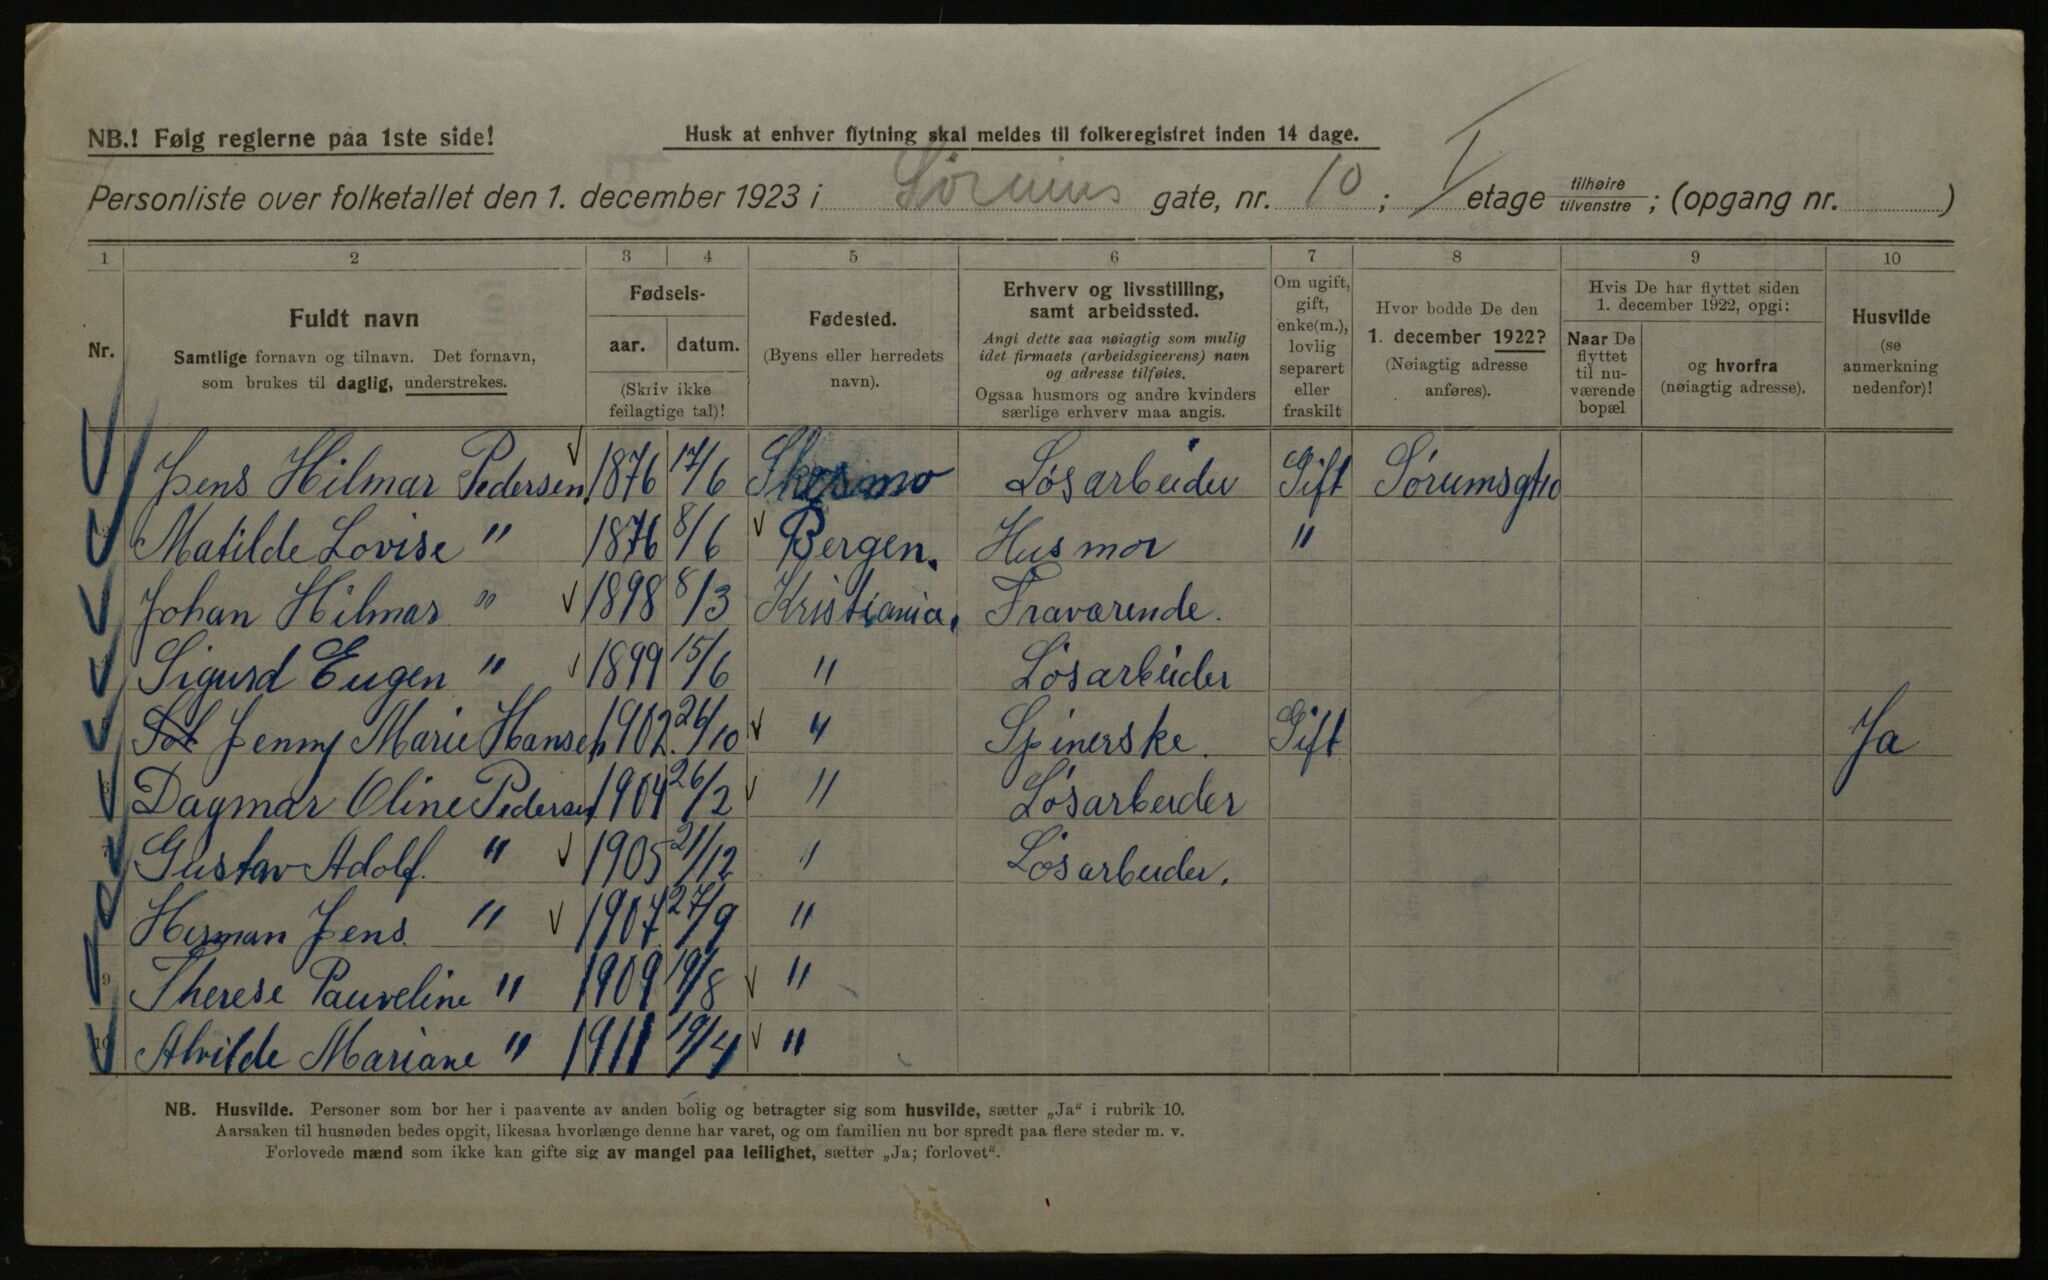 NB.! Følg reglerne paa 1ste side!
Husk at enhver flytning skal meldes til folkeregistret inden 14 dage.
Personliste over folketallet den 1. december 1923 i Sørums gate, nr. 10 ; I etage tilhøire tilvenstre ; (opgang nr. )
1 2 3 4 5 6 7 8 9 10
Nr.
Fuldt navn
Samtlige fornavn og tilnavn. Det fornavn,
som brukes til daglig, understrekes.
Fødsels-
aar. datum.
(Skriv ikke
feilagtige tal)!
Fødested.
(Byens eller herredets
navn).
Erhverv og livsstilling,
samt arbeidssted.
Angi dette saa nøiagtig som mulig
idet firmaets (arbeidsgiverens) navn
og adresse tilføies.
Ogsaa husmors og andre kvinders
særlige erhverv maa angis.
Om ugift,
gift,
enke(m.),
lovlig
separert
eller
fraskilt
Hvor bodde De den
1. december 1922?
(Nøiagtig adresse
anføres).
Hvis De har flyttet siden
1. december 1922, opgi:
Naar De
flyttet
til nu-
værende
bopæl
og hvorfra
(nøiagtig adresse).
Husvilde
(se
anmerkning
nedenfor)!
Jens Hilmar Pedersen 1876 17/6 Skesmo Løsarbeider Gift Sørumsgt 10
Matilde Lovise " 1876 8/6 Bergen. Husmor "
Johan Hilmar " 1898 8/3 Kristiania. Fraværende.
Sigurd Eugen " 1899 15/6 " Løsarbeider
Jenny Marie Hansen 1902. 26/10 " Spinerske. Gift Ja
6 Dagmar Oline Pedersen 1904 26/2 " Løsarbeider
7 Gustav Adolf. " 1905 21/12 " Løsarbeider.
Herman Jens. " 1907. 27/9 "
9 Therese Pauveline " 1909 19/8 "
10 Alvilde Mariane " 1911 19/4 "
NB. Husvilde. Personer som bor her i paavente av anden bolig og betragter sig som husvilde, sætter „Ja“ i rubrik 10.
Aarsaken til husnøden bedes opgit, likesaa hvorlænge denne har varet, og om familien nu bor spredt paa flere steder m. v.
Forlovede mænd som ikke kan gifte sig av mangel paa leilighet, sætter „Ja; forlovet“.